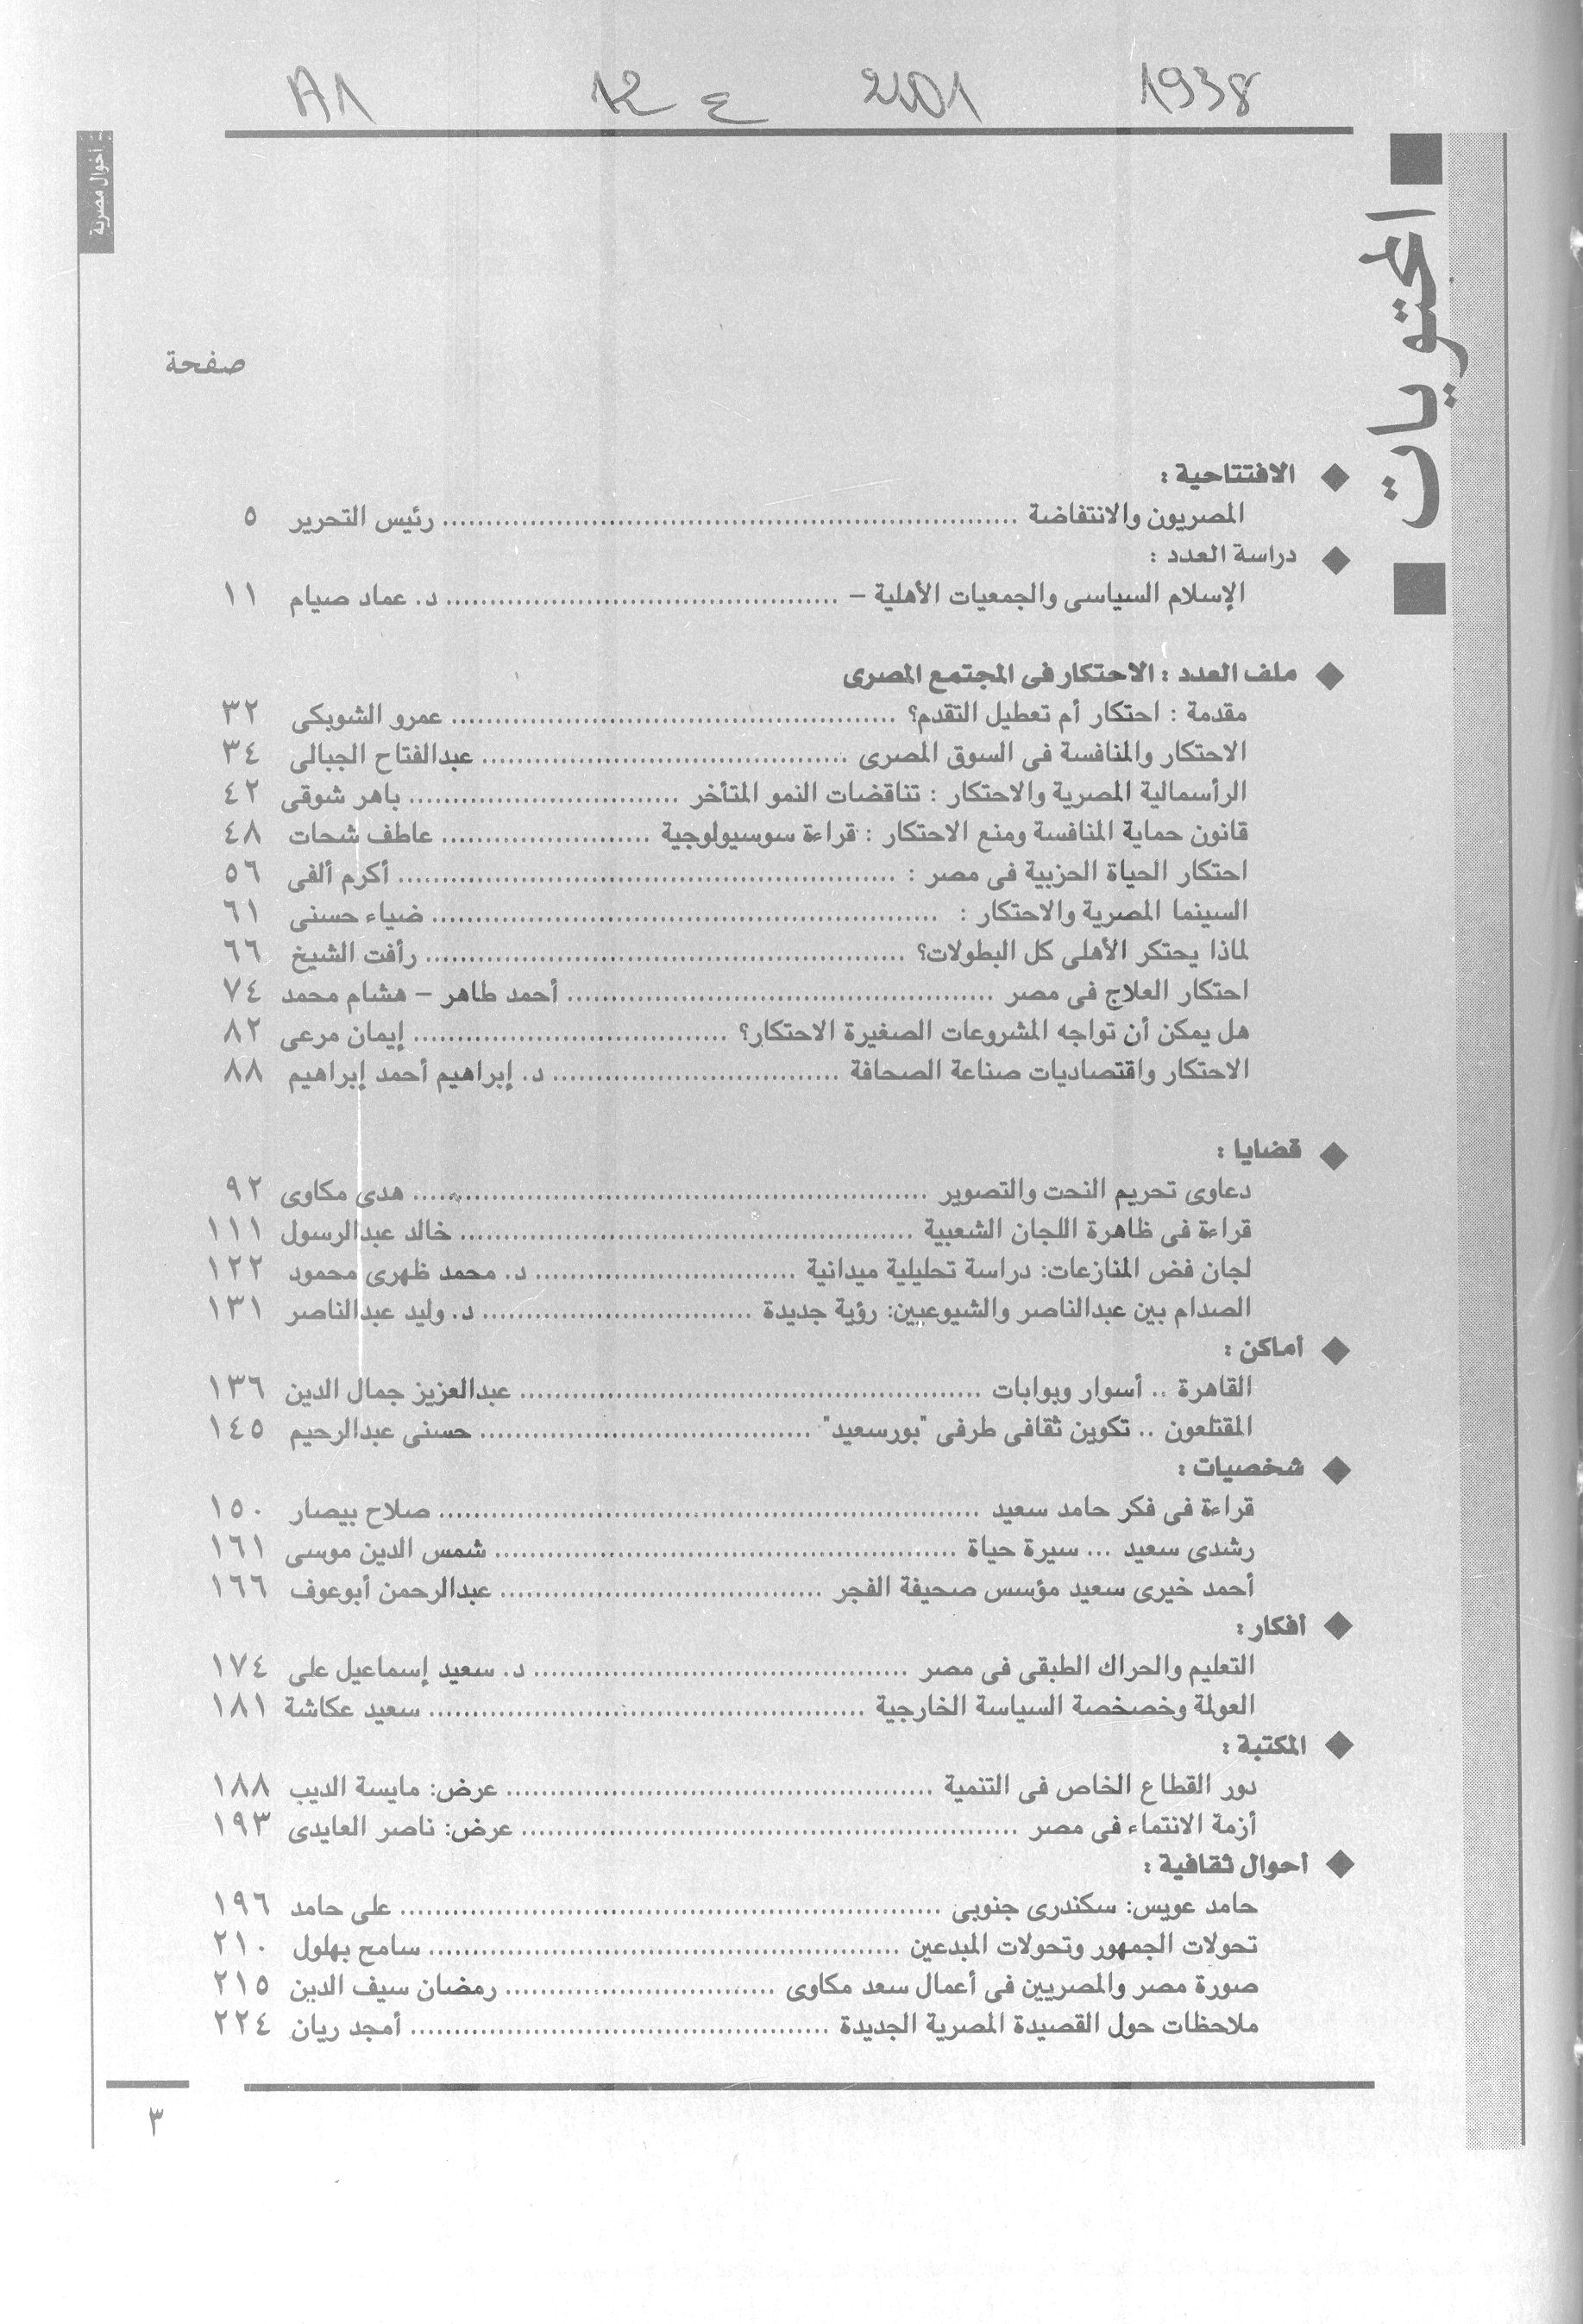 A1 12 ع 2001 1938
أحوال مصرية
المحتويات
صفحة
الافتتاحية :
المصريون والانتفاضة ................ رئيس التحرير ٥
دراسة العدد :
الإسلام السياسى والجمعيات الأهلية – ................ د. عماد صيام ١١
ملف العدد : الاحتكار فى المجتمع المصرى
مقدمة : احتكار أم تعطيل التقدم؟ ................ عمرو الشوبكى ٣٢
الاحتكار والمنافسة فى السوق المصرى ................ عبدالفتاح الجبالى ٣٤
الرأسمالية المصرية والاحتكار : تناقضات النمو المتأخر ................ باهر شوقى ٤٢
قانون حماية المنافسة ومنع الاحتكار : قراءة سوسيولوجية ................ عاطف شحات ٤٨
احتكار الحياة الحزبية فى مصر : ................ أكرم ألفى ٥٦
السينما المصرية والاحتكار : ................ ضياء حسنى ٦١
لماذا يحتكر الأهلى كل البطولات؟ ................ رأفت الشيخ ٦٦
احتكار العلاج فى مصر ................ أحمد طاهر – هشام محمد ٧٤
هل يمكن أن تواجه المشروعات الصغيرة الاحتكار؟ ................ إيمان مرعى ٨٢
الاحتكار واقتصاديات صناعة الصحافة ................ د. إبراهيم أحمد إبراهيم ٨٨
قضايا :
دعاوى تحريم النحت والتصوير ................ هدى مكاوى ٩٢
قراءة فى ظاهرة اللجان الشعبية ................ خالد عبدالرسول ١١١
لجان فض المنازعات: دراسة تحليلية ميدانية ................ د. محمد ظهرى محمود ١٢٢
الصدام بين عبدالناصر والشيوعيين: رؤية جديدة ................ د. وليد عبدالناصر ١٣١
أماكن :
القاهرة .. أسوار وبوابات ................ عبدالعزيز جمال الدين ١٣٦
المقتلعون .. تكوين ثقافى طرفى "بورسعيد" ................ حسنى عبدالرحيم ١٤٥
شخصيات :
قراءة فى فكر حامد سعيد ................ صلاح بيصار ١٥٠
رشدى سعيد ... سيرة حياة ................ شمس الدين موسى ١٦١
أحمد خيرى سعيد مؤسس صحيفة الفجر ................ عبدالرحمن أبوعوف ١٦٦
أفكار :
التعليم والحراك الطبقى فى مصر ................ د. سعيد إسماعيل على ١٧٤
العولمة وخصخصة السياسة الخارجية ................ سعيد عكاشة ١٨١
المكتبة :
دور القطاع الخاص فى التنمية ................ عرض: مايسة الديب ١٨٨
أزمة الانتماء فى مصر ................ عرض: ناصر العايدى ١٩٣
أحوال ثقافية :
حامد عويس: سكندرى جنوبى ................ على حامد ١٩٦
تحولات الجمهور وتحولات المبدعين ................ سامح بهلول ٢١٠
صورة مصر والمصريين فى أعمال سعد مكاوى ................ رمضان سيف الدين ٢١٥
ملاحظات حول القصيدة المصرية الجديدة ................ أمجد ريان ٢٢٤
٣